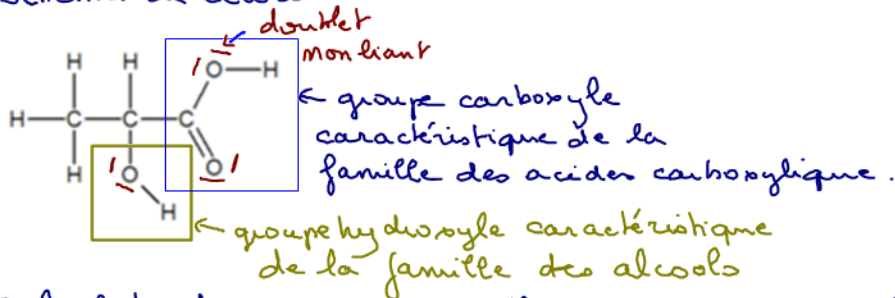 doublet
non liant
H H O—H
H—C—C—C
H O O
H
← groupe carboxyle
caractéristique de la
famille des acides carboxylique.
← groupe hydroxyle caractéristique
de la famille des alcools